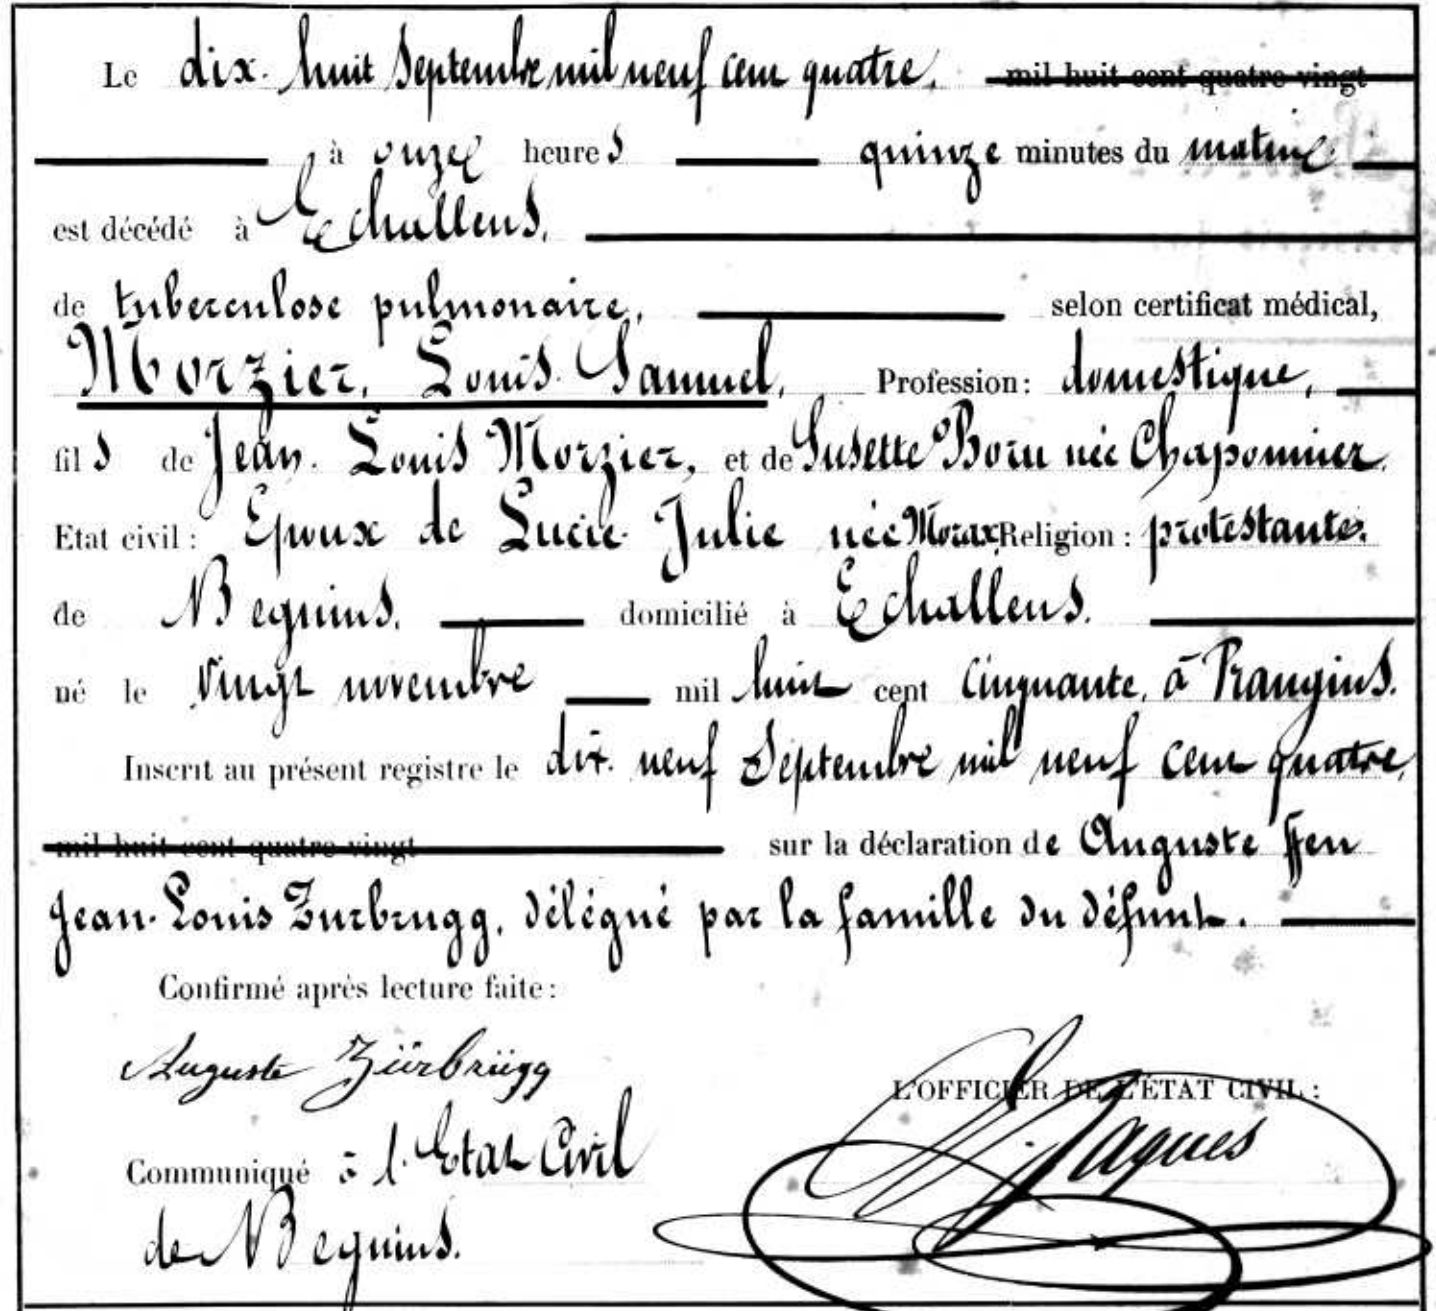 Le dix-huit Septembre mil neuf cent quatre, mil huit cent quatre vingt
à onze heures quinze minutes du matin
est décédé à Echallens.
de tuberculose pulmonaire, selon certificat médical,
Morzier, Louis Samuel, Profession: domestique,
fils de Jean-Louis Morzier, et de Susette Born née Chaponnier.
Etat civil: Epoux de Lucie-Julie née Morax Religion: protestante.
de Begnins. domicilié à Echallens.
né le vingt novembre mil huit cent cinquante, à Prangins.
Inscrit au présent registre le dix-neuf Septembre mil neuf cent quatre,
mil huit cent quatre vingt sur la déclaration de Auguste ffeu
Jean-Louis Zurbrugg, délégué par la famille du défunt.
Confirmé après lecture faite:
Auguste Zürbrügg
L'OFFICIER DE L'ÉTAT CIVIL:
Jaques
Communiqué à l'Etat Civil
de Begnins.